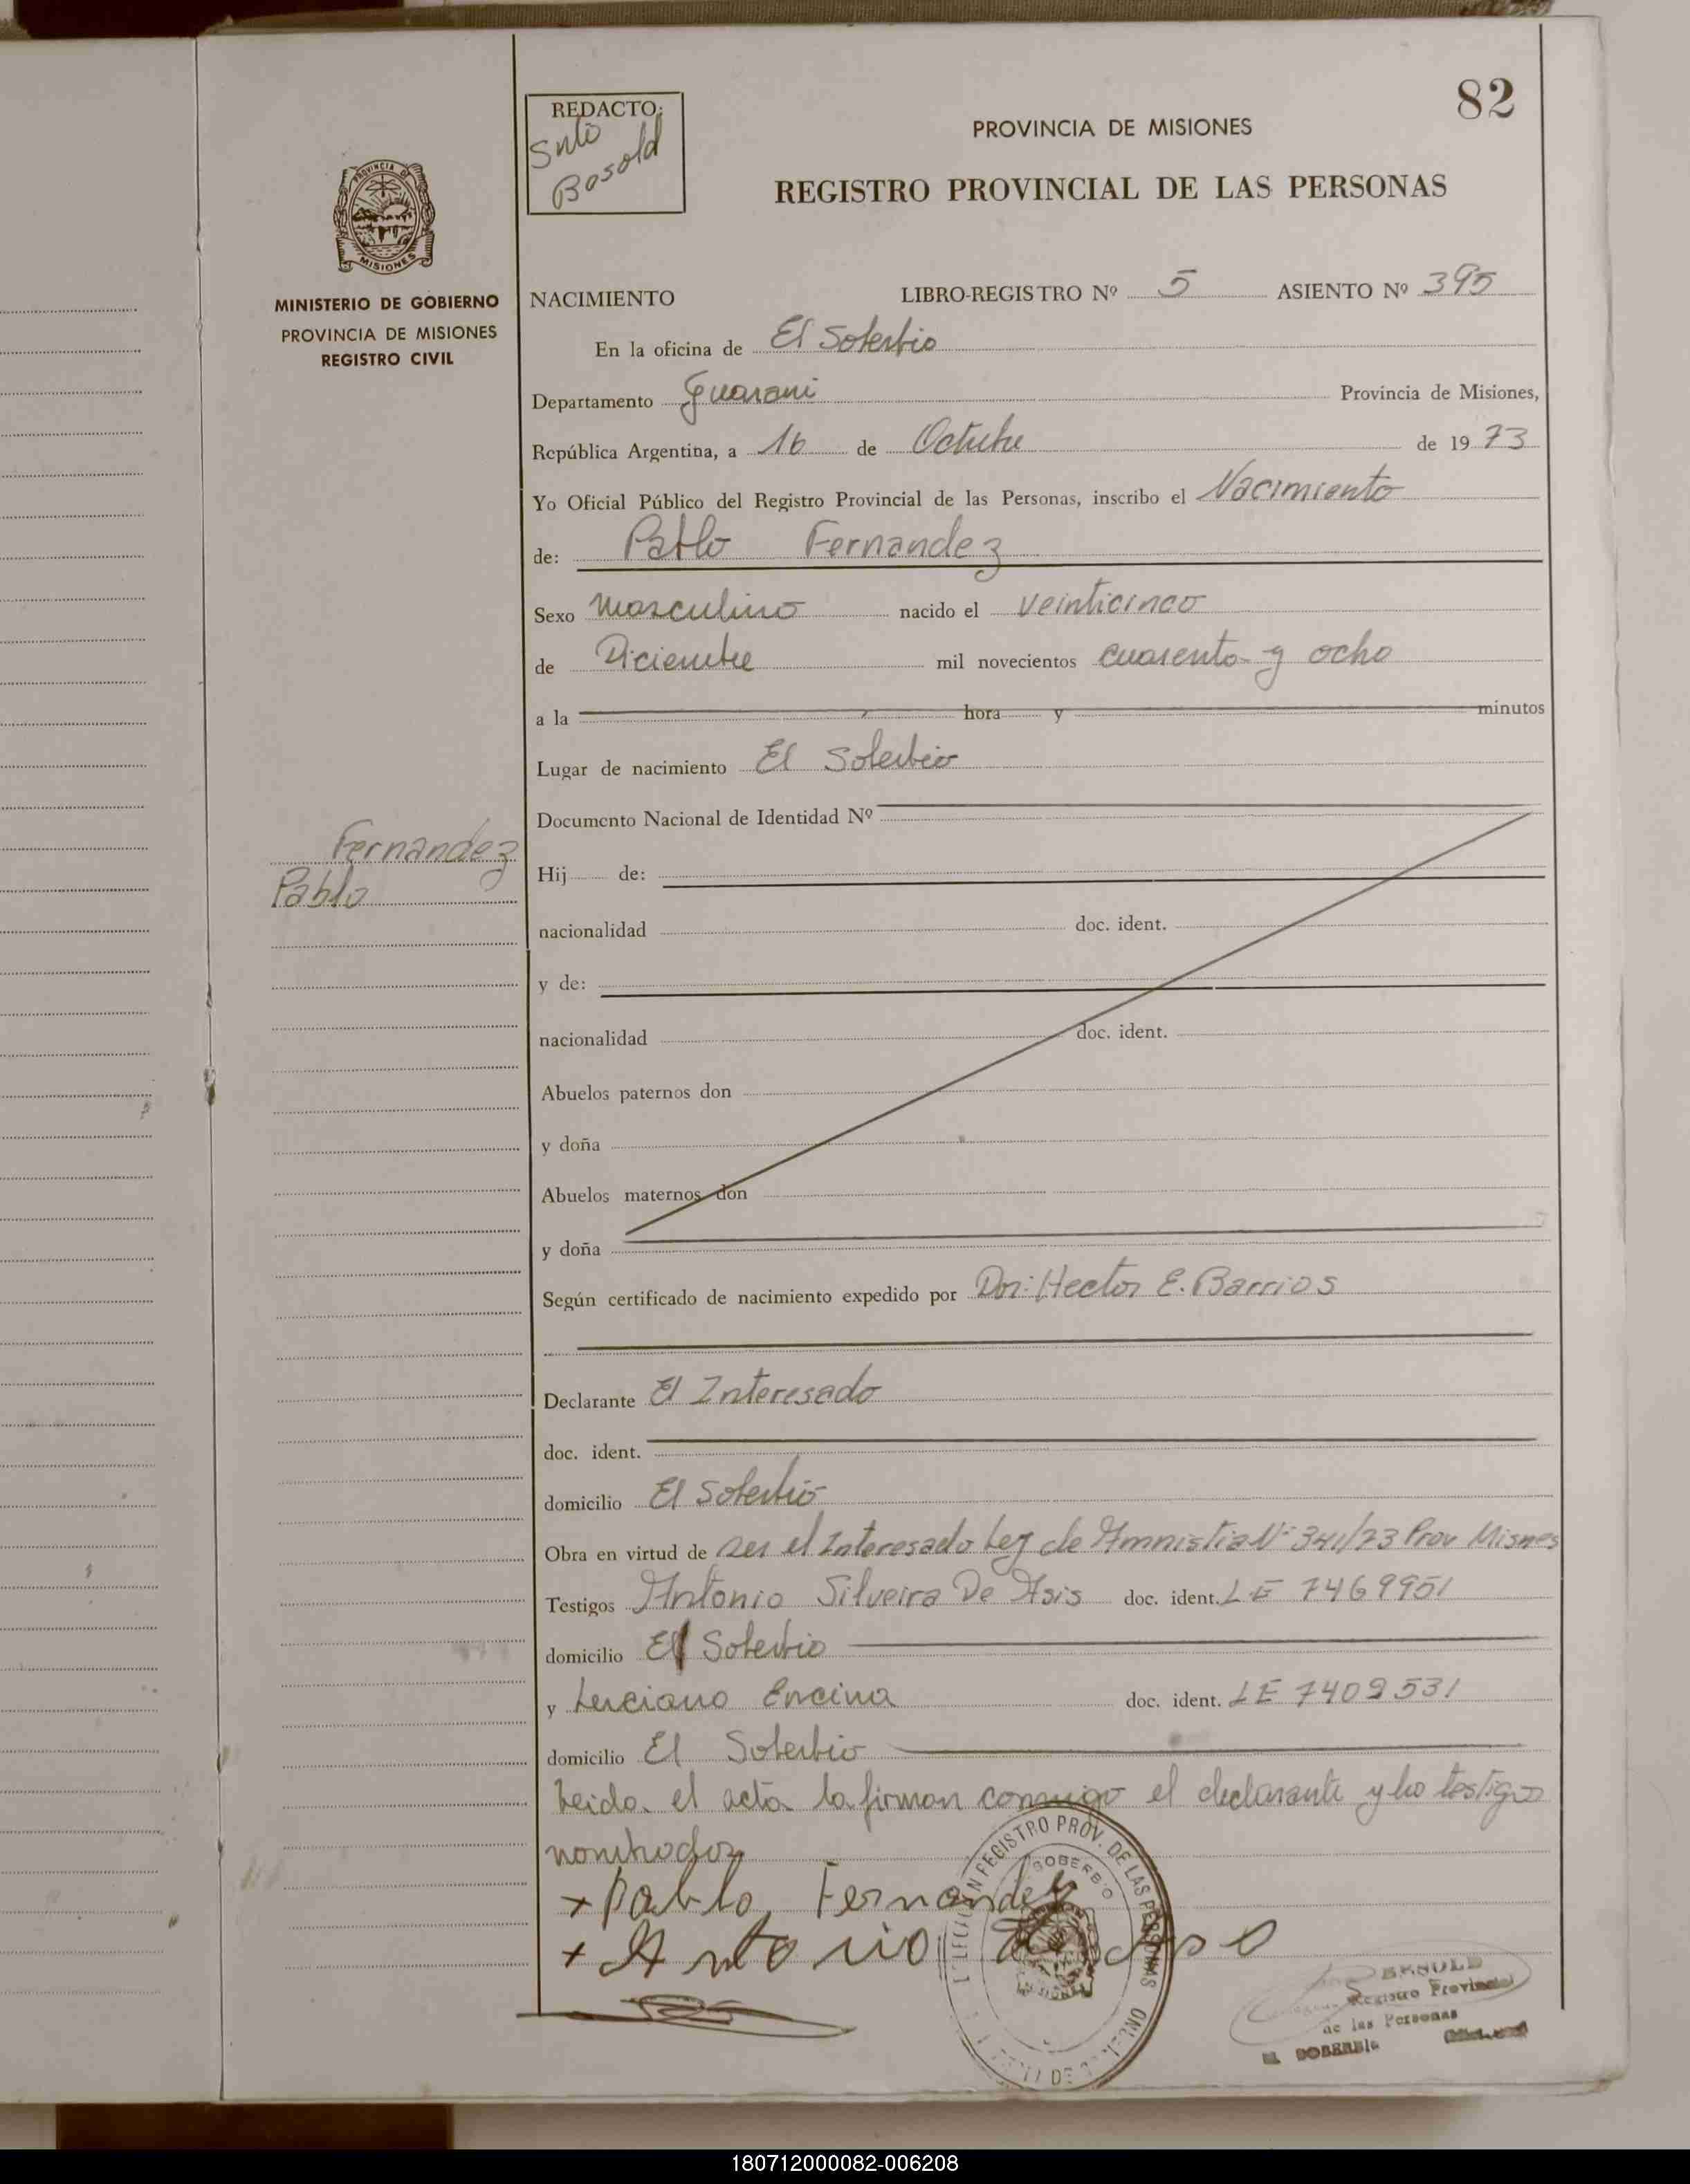 82
REDACTO:
Bosold
PROVINCIA DE MISIONES
REGISTRO PROVINCIAL DE LAS PERSONAS
PROVINCIA DE
MISIONES
MINISTERIO DE GOBIERNO
PROVINCIA DE MISIONES
REGISTRO CIVIL
NACIMIENTO LIBRO-REGISTRO Nº 5 ASIENTO Nº 395
En la oficina de El Soberbio
Departamento Guarani Provincia de Misiones,
República Argentina, a 16 de Octubre de 1973
Yo Oficial Público del Registro Provincial de las Personas, inscribo el Nacimiento
de: Pablo Fernandez
Sexo Masculino nacido el veinticinco
de Diciembre mil novecientos cuarenta y ocho
a la hora y minutos
Lugar de nacimiento El Soberbio
Documento Nacional de Identidad Nº
Fernandez
Pablo
Hij de:
nacionalidad doc. ident.
y de:
nacionalidad doc. ident.
Abuelos paternos don
y doña
Abuelos maternos don
y doña
Según certificado de nacimiento expedido por Dr: Hector E. Barrios
Declarante El Interesado
doc. ident.
domicilio El Soberbio
Obra en virtud de ser el Interesado Ley de Amnistia Nº 341/73 Prov Misnes
Testigos Antonio Silveira De Asis doc. ident. LE 7469951
domicilio El Soberbio
y Luciano Encina doc. ident. LE 7409531
domicilio El Soberbio
Leida el acta la firman conmigo el declarante y los testigos
nombrados
x Pablo Fernandez
x Antonio
REGISTRO PROV. DE LAS PERSONAS
SOBERBIO
MISIONES
BESOLD
Registro Provincial
de las Personas
EL SOBERBIO
180712000082-006208